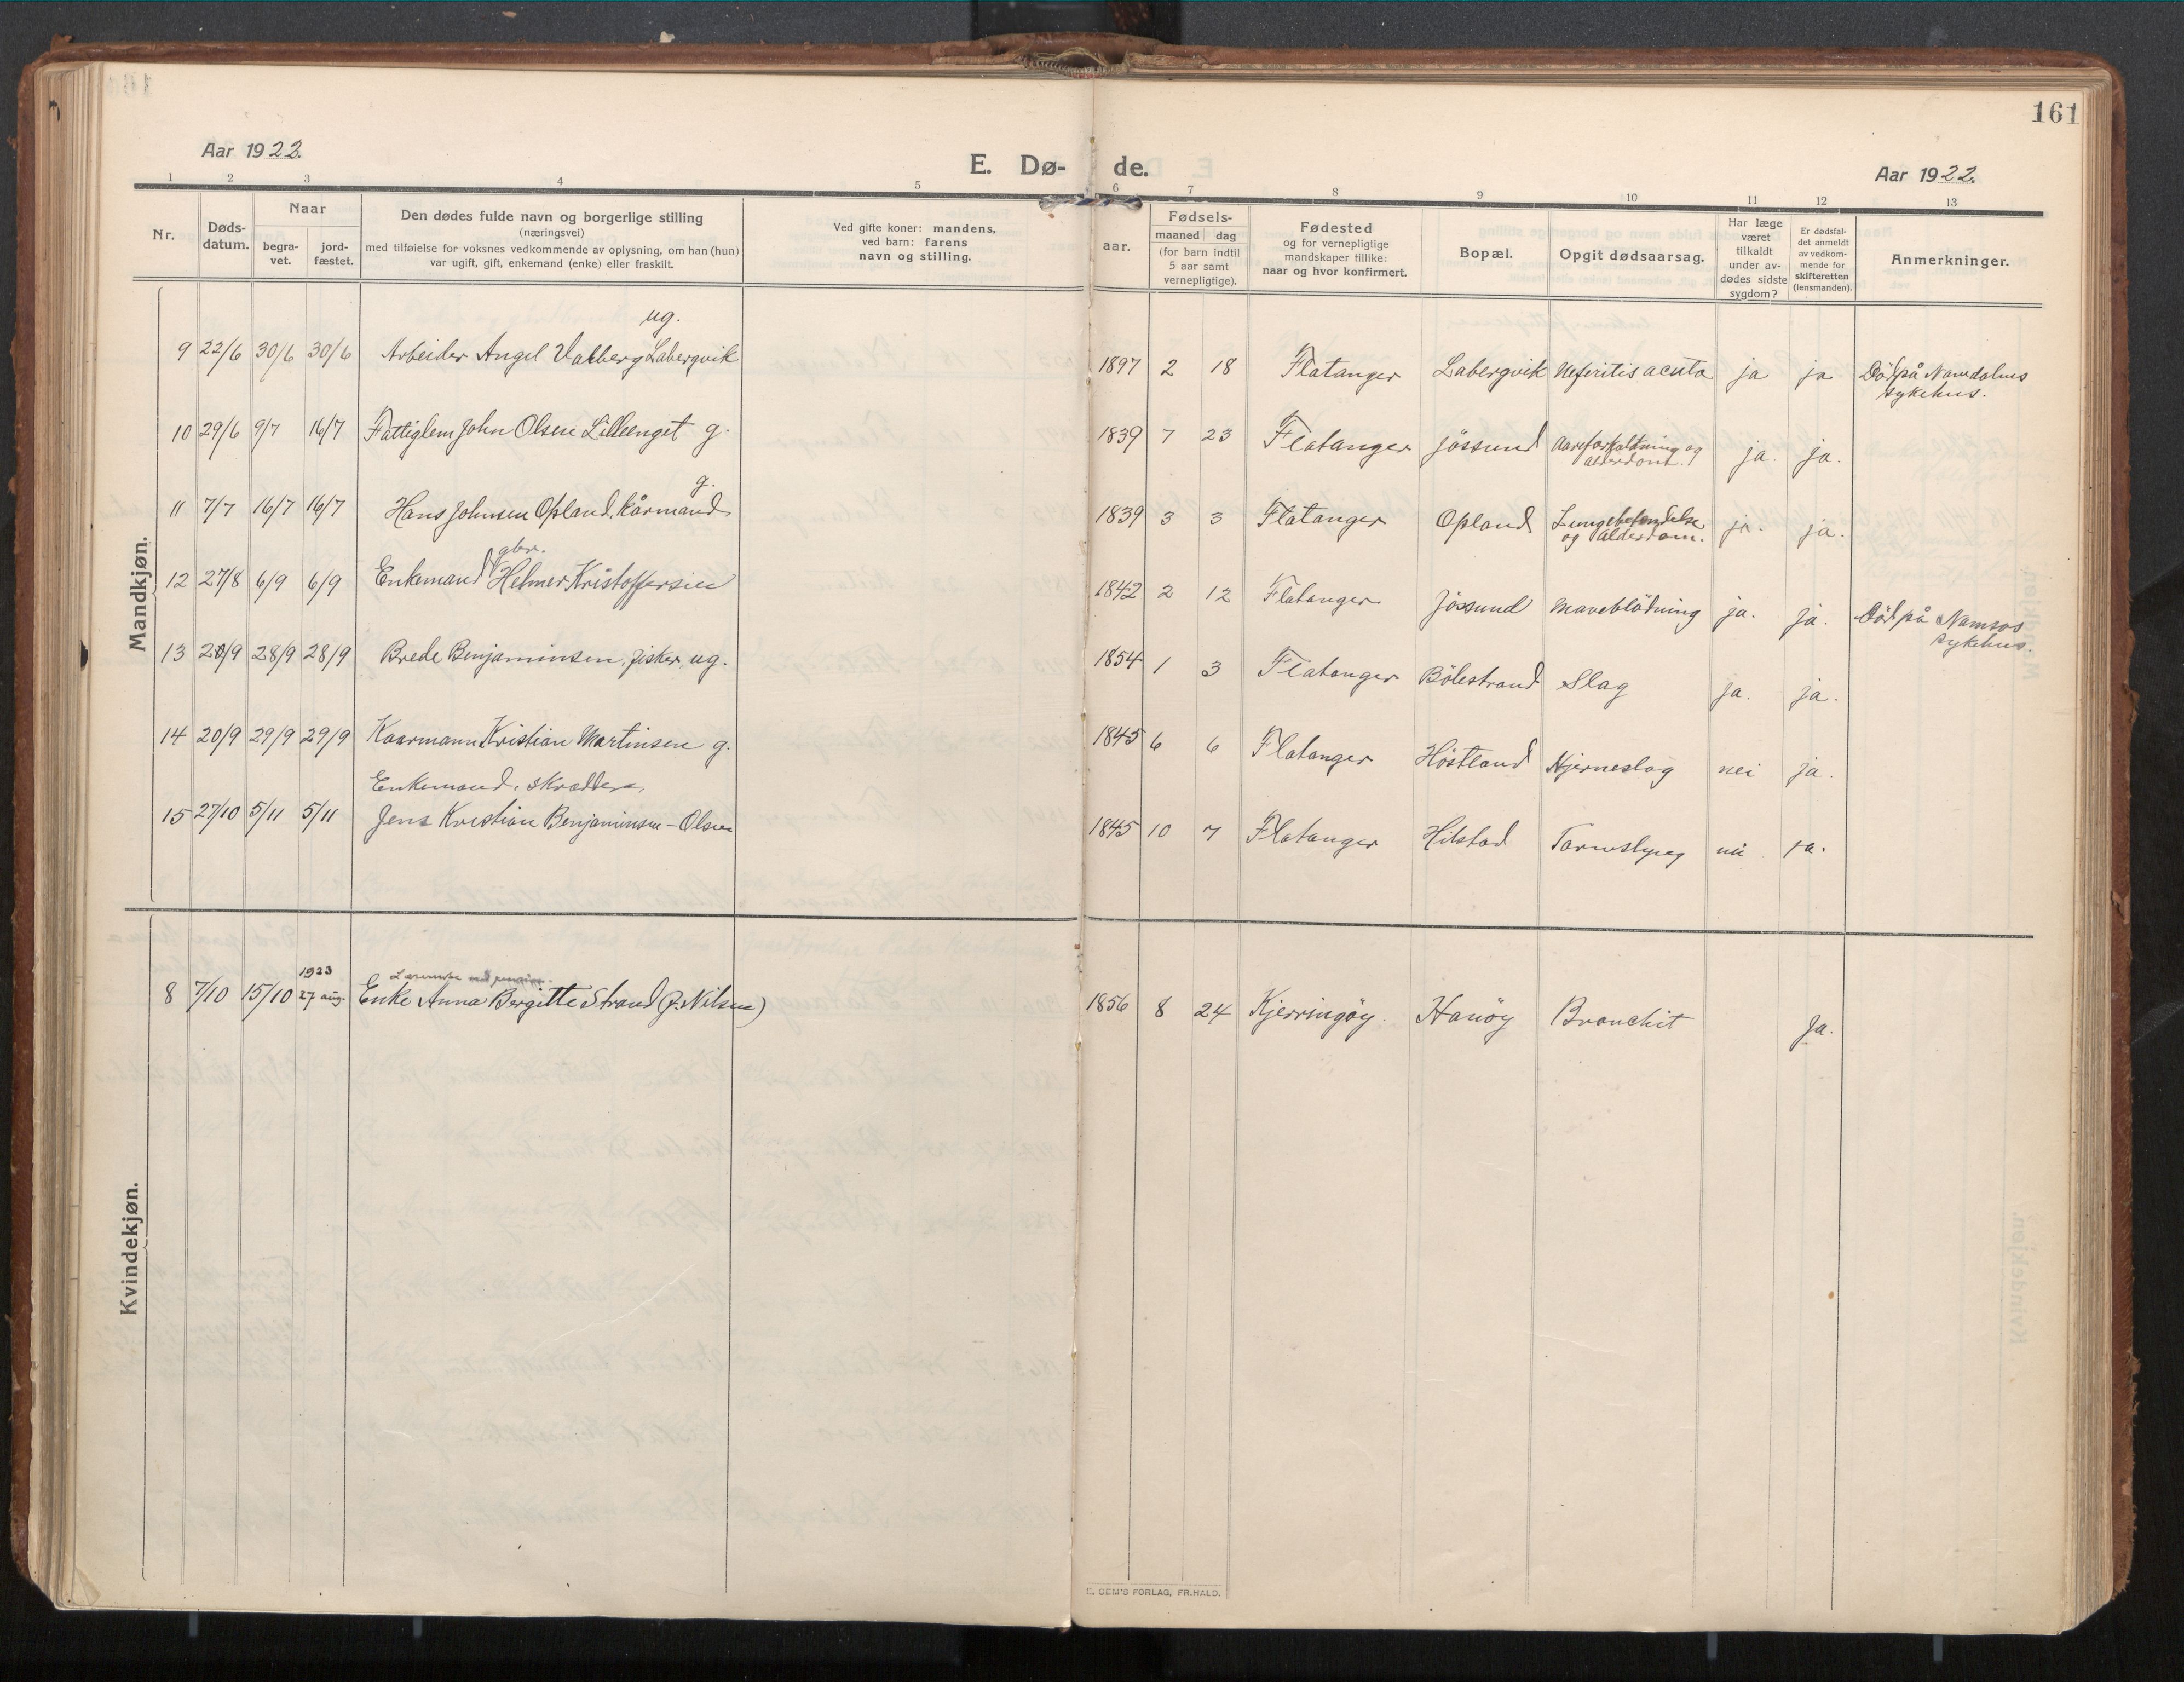 161
Aar 1922.
E. Dø- de.
Aar 1922.
1 2 3 4 5 6 7 8 9 10 11 12 13
Nr.
Døds-
datum.
Naar
begra-
vet.
jord-
fæstet.
Den dødes fulde navn og borgerlige stilling
(næringsvei)
med tilføielse for voksnes vedkommende av oplysning, om han (hun)
var ugift, gift, enkemand (enke) eller fraskilt.
Ved gifte koner: mandens,
ved barn: farens
navn og stilling.
Fødsels-
aar.
maaned dag
(for barn indtil
5 aar samt
vernepligtige).
Fødested
og for vernepligtige
mandskaper tillike:
naar og hvor konfirmert.
Bopæl.
Opgit dødsaarsag.
Har læge
været
tilkaldt
under av-
dødes sidste
sygdom?
Er dødsfal-
det anmeldt
av vedkom-
mende for
skifteretten
(lensmanden).
Anmerkninger.
Mandkjøn.
ug.
9 22/6 30/6 30/6 Arbeider Angel Valberg Labergvik 1897 2 18 Flatanger Labergvik Nefritis acuta ja ja Död på Namdalens
sykehus.
10 29/6 9/7 16/7 Fattiglem John Olsen Lilleenget g. 1839 7 23 Flatanger Jössund Aareforkalkning og
alderdom. ja. ja.
g.
11 7/7 16/7 16/7 Hans Johnsen Opland, kårmand 1839 3 3 Flatanger Opland
og Alderdom. ja. ja.
gbr.
12 27/8 6/9 6/9 Enkemand Helmer Kristoffersen 1842 2 12 Flatanger Jössund Maveblödning ja. ja. Död på Namsos
sykehus.
13 20/9 28/9 28/9 Brede Benjaminsen, fisker, ug. 1854 1 3 Flatanger Bölestrand Slag ja. ja.
14 20/9 29/9 29/9 Kaarmann Kristian Martinsen g. 1845 6 6 Flatanger Höstland Hjerneslag nei ja.
Enkemand, skrædder,
15 27/10 5/11 5/11 Jens Kristian Benjaminsen-Olsen 1845 10 7 Flatanger Hilstad nei ja.
Kvindekjøn.
1923
Lærerenke med pension.
8 7/10 15/10 27 aug. Enke Anna Bergitte Strand (f. Nilsen) 1856 8 24 Kjerringöy. Hanöy Bronchit Ja.
E. SEM'S FORLAG, FR.HALD.